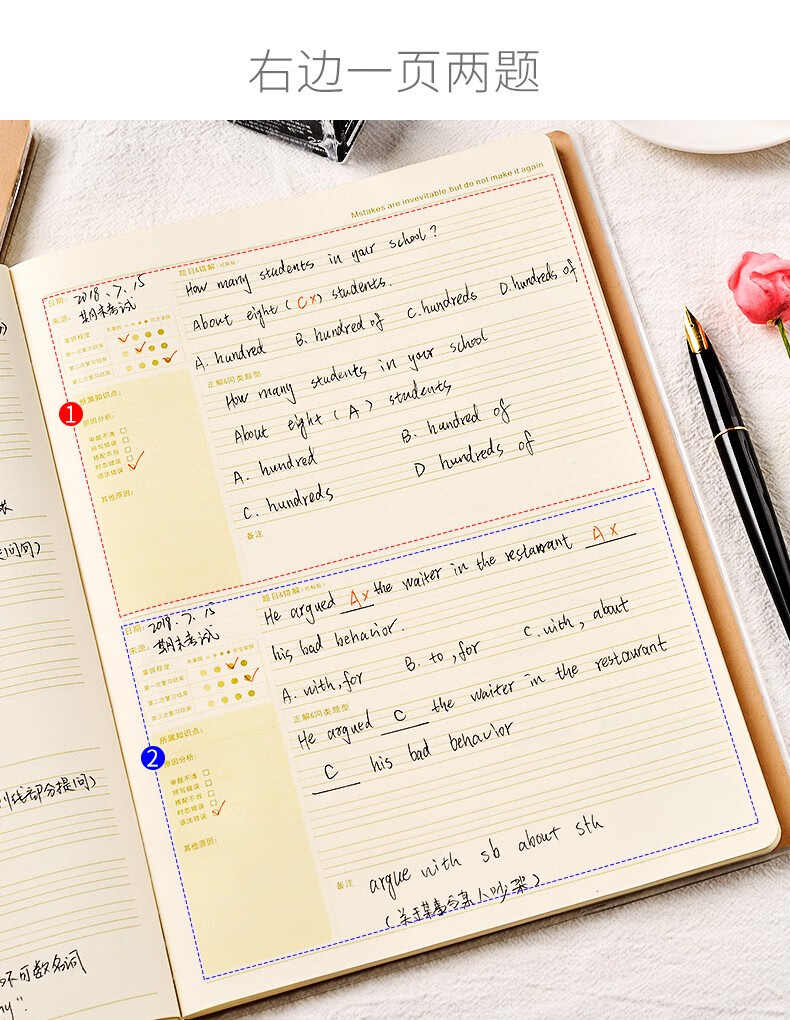 右边一页两题
Mstakes are invevitable,but do not make it again
日期: 2018.7.15
来源: 期末考试
掌握程度 未掌握 完全掌握
第一次复习结果
第二次复习结果
第三次复习结果
1
所属知识点:
原因分析:
审题不清
拼写错误
搭配不当
时态错误
语法错误
其他原因:
题目&错解:(可粘贴)
How many students in your school?
About eight (C×) students.
A. hundred B. hundred of C. hundreds D. hundreds of
正解&同类题型
How many students in your school
About eight (A) students
A. hundred B. hundred of
C. hundreds D hundreds of
备注
日期: 2018.7.15
来源: 期末考试
掌握程度 未掌握 完全掌握
第一次复习结果
第二次复习结果
第三次复习结果
2
所属知识点:
原因分析:
审题不清
拼写错误
搭配不当
时态错误
语法错误
其他原因:
题目&错解:(可粘贴)
He argued A× the waiter in the restaurant A×
his bad behavior.
A. with, for B. to, for C. with, about
正解&同类题型
He argued C the waiter in the restaurant
C his bad behavior
备注
argue with sb about sth
(关于某事与某人吵架)
线部分提问)
不可数名词